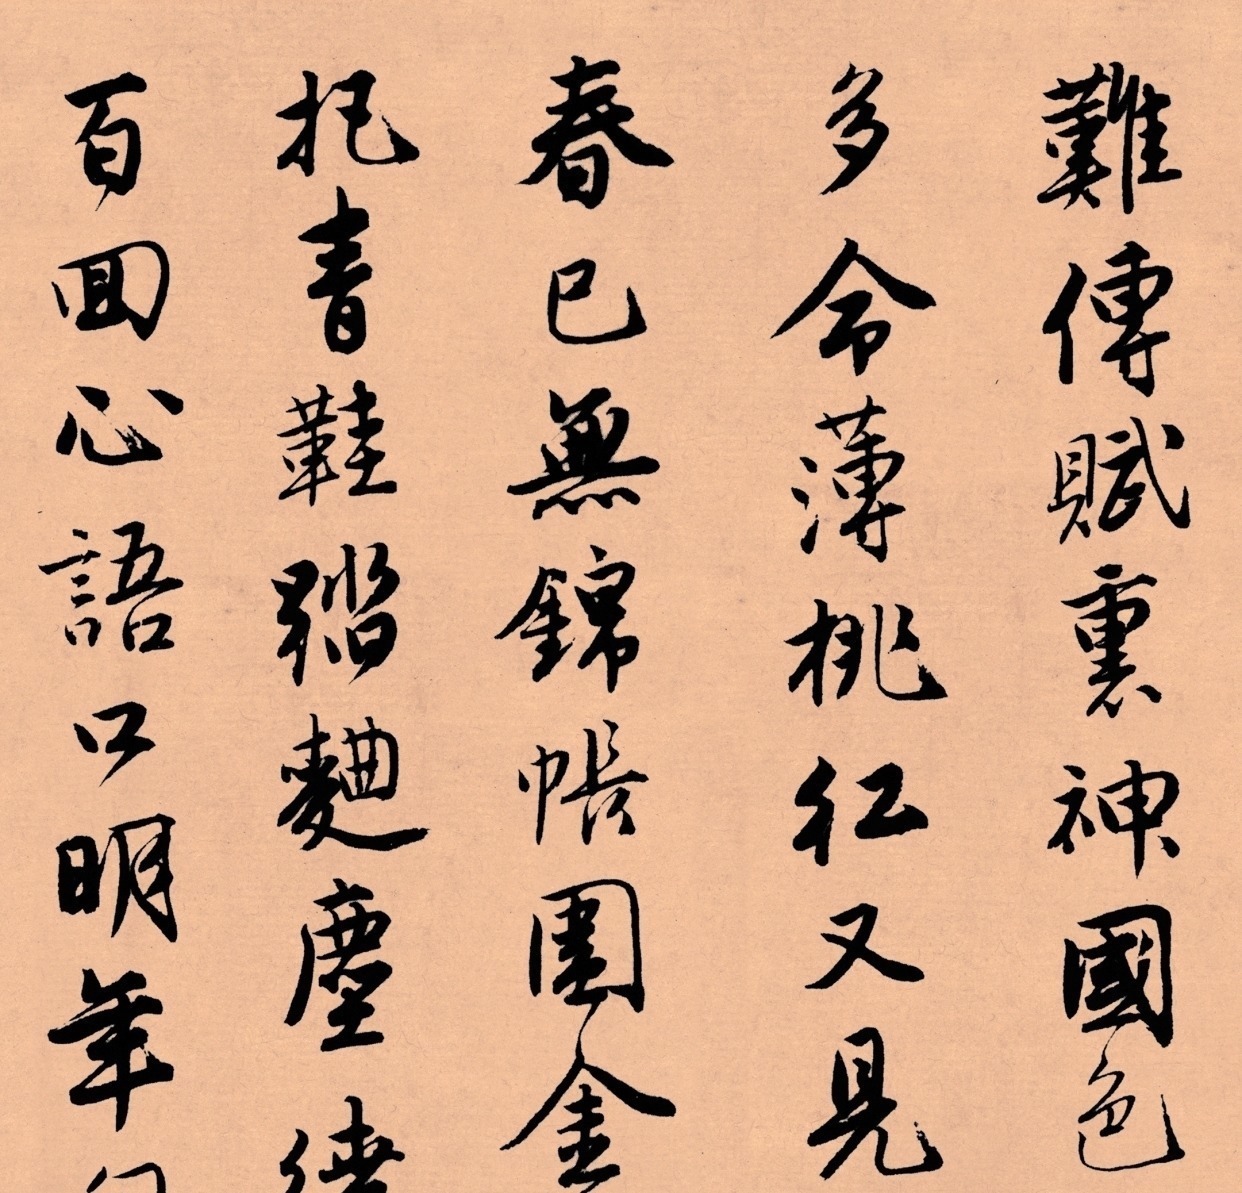 難傳賦裏神國色
多命薄桃紅又見
春已無錦帳圍金
把青鞋踏麴塵繞
百回心語口明年